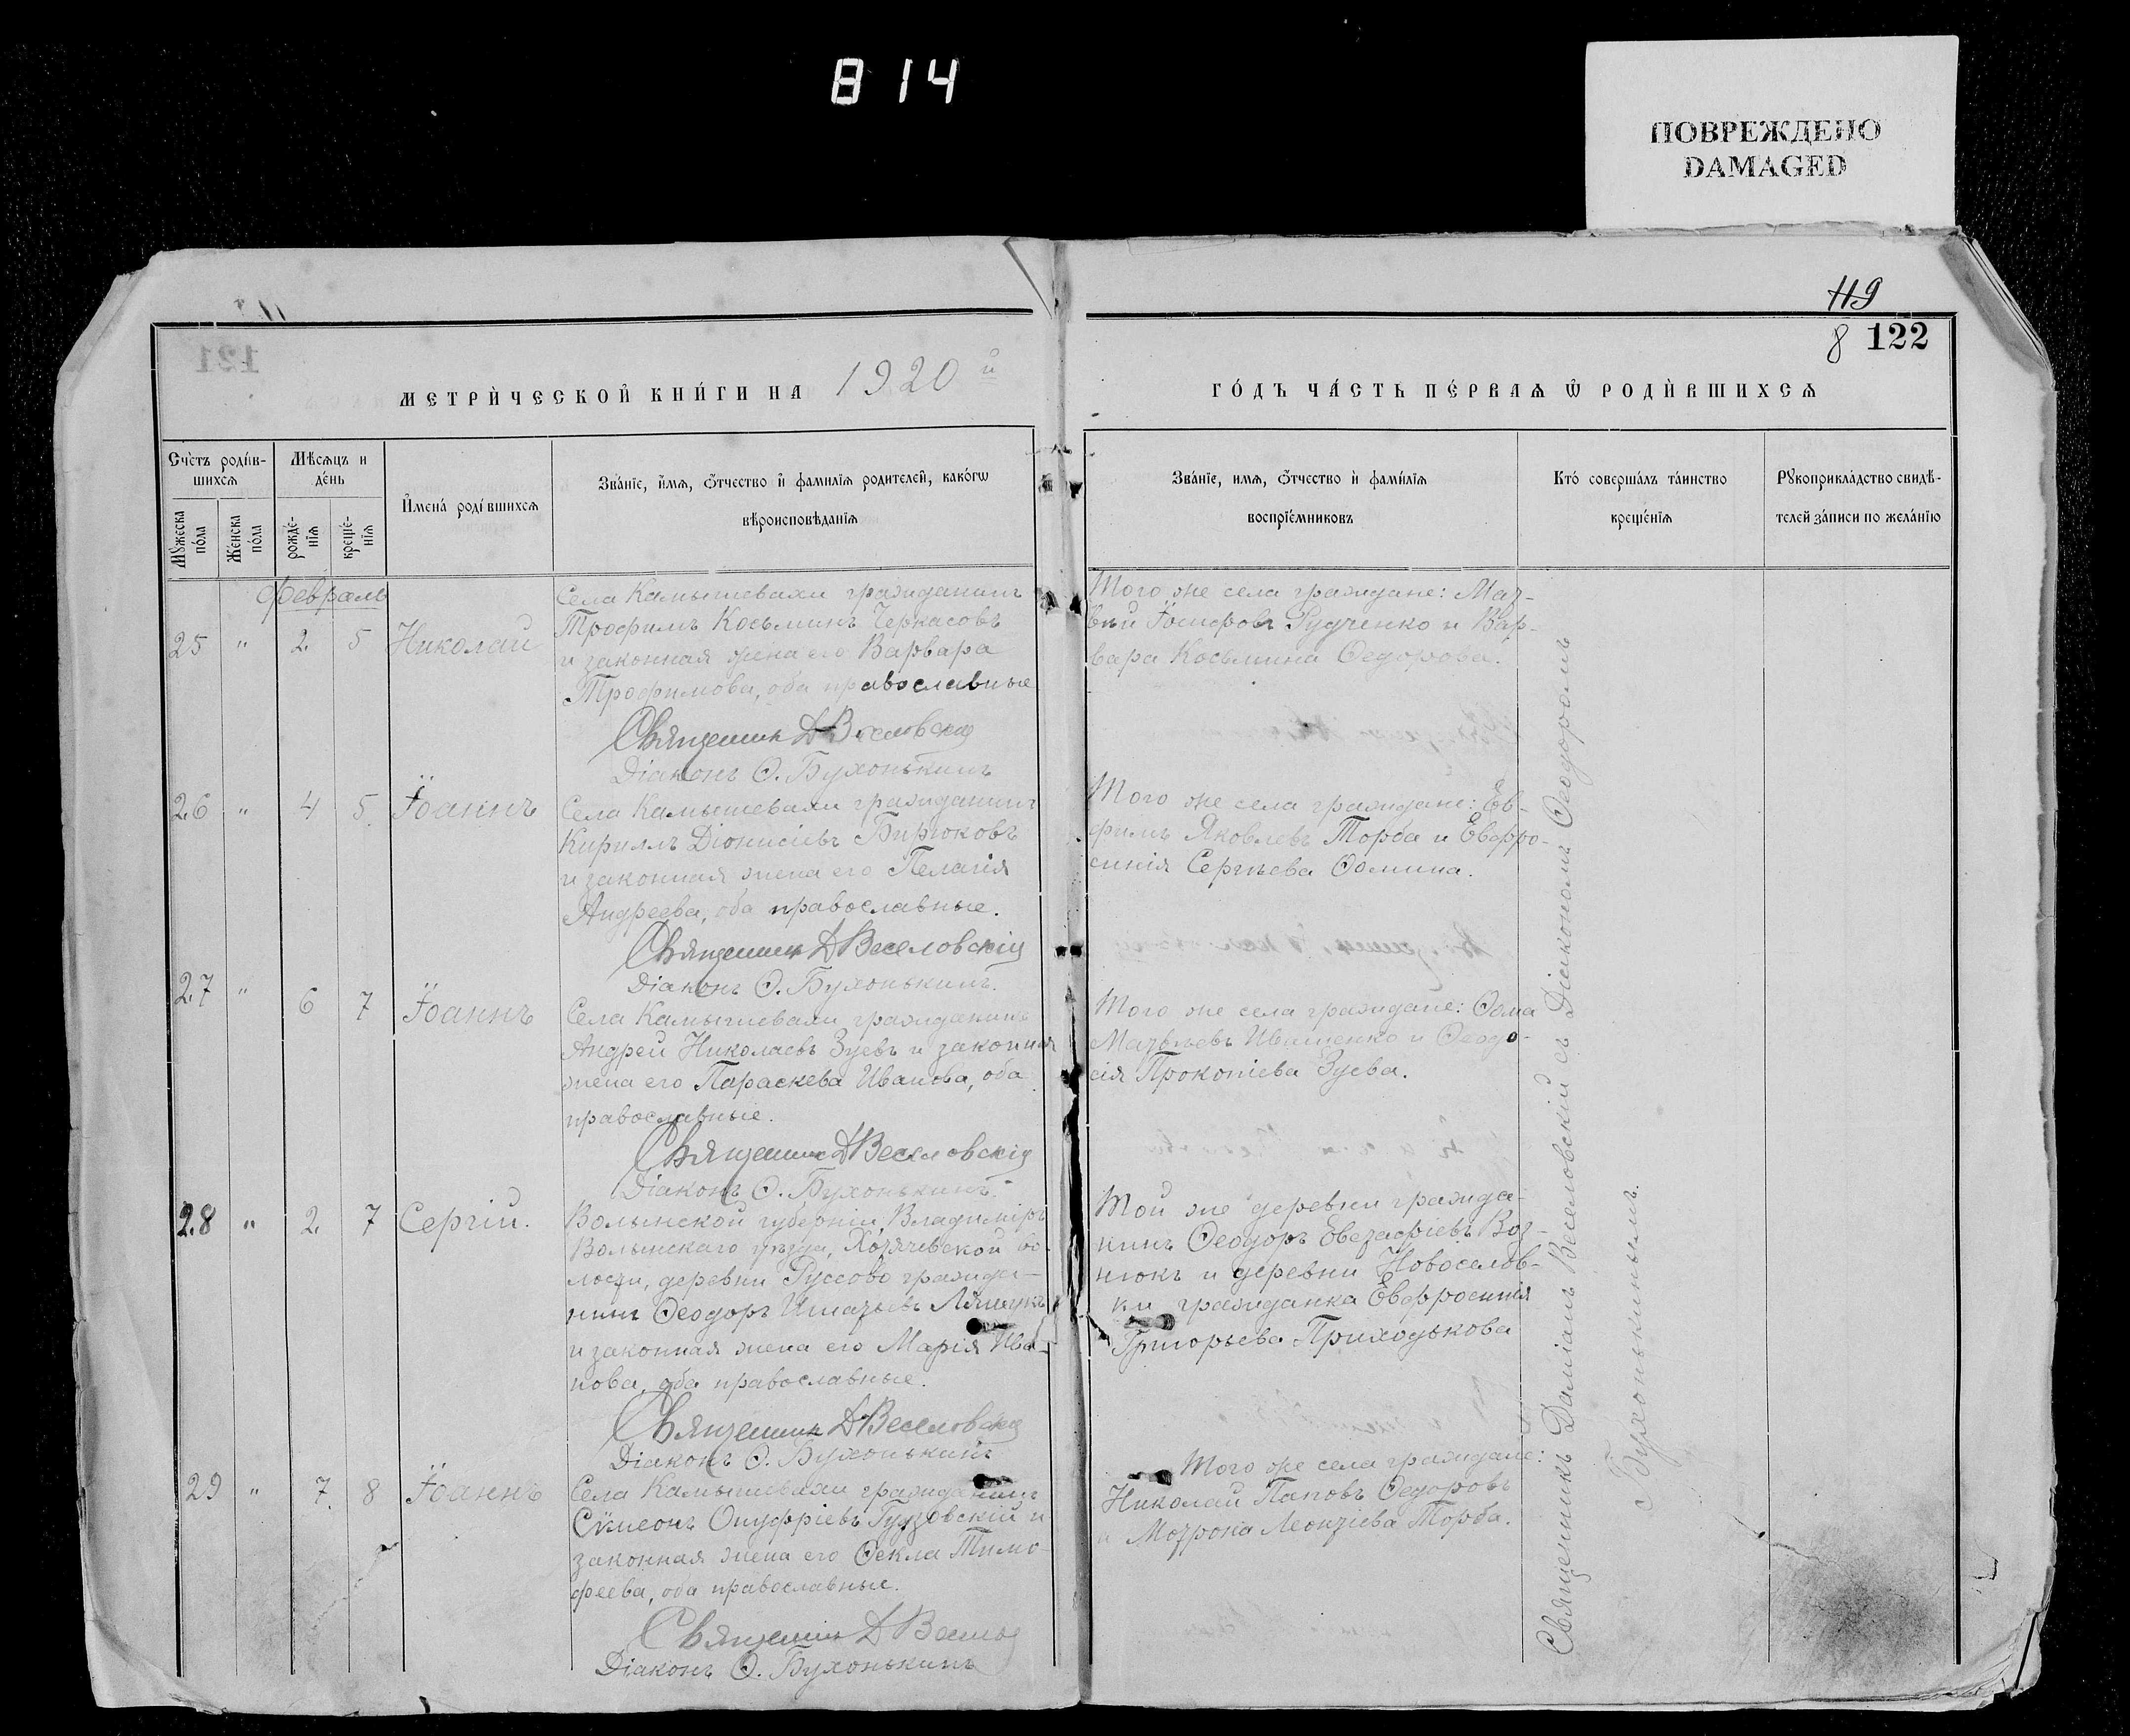 814
ПОВРЕЖДЕНО
DAMAGED
119
8 122
121
МЕТРИ́ЧЕСКОЙ КНИ́ГИ НА 1920 й
ГО́ДЪ ЧА́СТЬ ПЕ́РВАѦ Ѿ РОДИ́ВШИХСѦ
Счетъ роди́в-
шихсѧ
Мѣсѧцъ и
де́нь
Мꙋжеска
по́ла
Же́нска
по́ла
рожде́-
нїѧ
креще́-
нїѧ
Имена́ роди́вшихсѧ
Зва́нїе, и́мѧ, ѻ́тчество и҆ фамилїѧ родителей, како́гѡ
вѣроисповѣданїѧ
Зва́нїе, имѧ, ѻ́тчество и҆ фами́лїѧ
воспрїе́мниковъ
Кто́ соверша́лъ та́инство
креще́нїѧ
Рꙋкоприкла́дство свидѣ́-
телей за́писи по жела́нїю
Февраль
25 " 2. 5 Николай
Села Камышевахи гражданинъ
Трофимъ Косьминъ Черкасовъ
и законная жена его Варвара
Трофимова, оба православные
Священник Д Веселовскій
Діаконъ Ѳ. Бухонькинъ
Того же села граждане: Мат-
вѣй Іосифовъ Рудченко и Вар-
вара Косьмина Ѳедорова.
26 " 4 5. Іоаннъ
Села Камышевахи гражданинъ
Кириллъ Діонисіевъ Бирюковъ
и законная жена его Пелагія
Андреева, оба православные.
Священник Д Веселовскій
Діаконъ Ѳ. Бухонькинъ.
Того же села граждане: Ев-
фимъ Яковлевъ Торба и Евфро-
синія Сергѣева Ѳомина.
27 " 6 7 Іоаннъ
Села Камышевахи гражданинъ
Андрей Николаевъ Зуевъ и законная
жена его Параскева Иванова, оба
православные.
Священник Д Веселовскій
Діаконъ Ѳ. Бухонькинъ.
Того же села граждане: Ѳома
Матвѣевъ Иващенко и Ѳеодо-
сія Прокопіева Зуева.
28 " 2. 7 Сергій.
Волынской губерніи, Владимиръ
Волынскаго уѣзда, во-
лости, деревни Руссово гражда-
нинъ Ѳеодоръ Игнатьевъ
и законная жена его Марія Ива-
нова, оба православные.
Священник Д Веселовскій
Діаконъ Ѳ. Бухонькинъ
Той же деревни гражда-
нинъ Ѳеодоръ Воз-
нюкъ и деревни Новоселов-
ки гражданка Евфросинія
Григорьева Приходькова
29 " 7. 8 Іоаннъ
Села Камышевахи гражданинъ
Сѵмеонъ Онуфріевъ Гудзовскій и
законная жена его Ѳекла Тимо-
феева, оба православные.
Священник Д
Діаконъ Ѳ. Бухонькинъ
Того же села граждане:
Николай Поповъ Ѳедоровъ
и Мотрона Леонтіева Торба.
Священникъ Даміанъ Веселовскій съ Діакономъ Ѳеодоромъ
Бухонькинымъ.